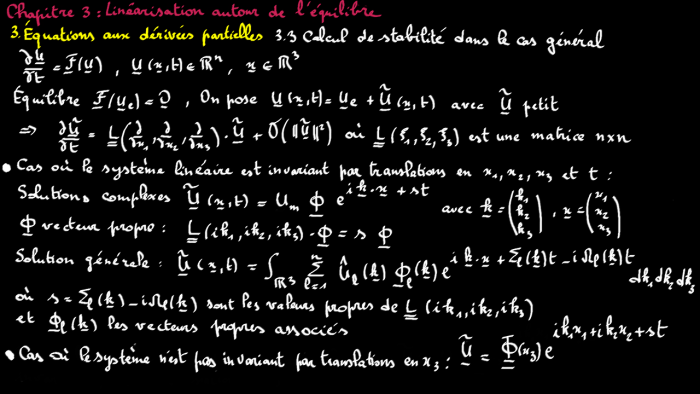 Chapitre 3 : Linéarisation autour de l'équilibre
3. Équations aux dérivées partielles 3.3 Calcul de stabilité dans le cas général
∂U/∂t = F(U) , U(x,t) ∈ ℝⁿ , x ∈ ℝ³
Équilibre F(Ue) = 0 , On pose U(x,t) = Ue + Ũ(x,t) avec Ũ petit
⇒ ∂Ũ/∂t = L(∂/∂x₁, ∂/∂x₂, ∂/∂x₃) · Ũ + O(‖Ũ‖²) où L(ξ₁,ξ₂,ξ₃) est une matrice n×n
• Cas où le système linéaire est invariant par translations en x₁, x₂, x₃ et t :
Solutions complexes Ũ(x,t) = Um Φ e^{i k·x + st} avec k = (k₁ k₂ k₃) , x = (x₁ x₂ x₃)
Φ vecteur propre : L(ik₁, ik₂, ik₃) · Φ = s Φ
Solution générale : Ũ(x,t) = ∫_{ℝ³} Σ_{l=1}^{n} Û_l(k) Φ_l(k) e^{i k·x + Σ_l(k)t - iΩ_l(k)t} dk₁ dk₂ dk₃
où s = Σ_l(k) - iΩ_l(k) sont les valeurs propres de L(ik₁, ik₂, ik₃)
et Φ_l(k) les vecteurs propres associés
• Cas où le système n'est pas invariant par translations en x₃ : Ũ = Φ(x₃) e^{ik₁x₁+ik₂x₂+st}